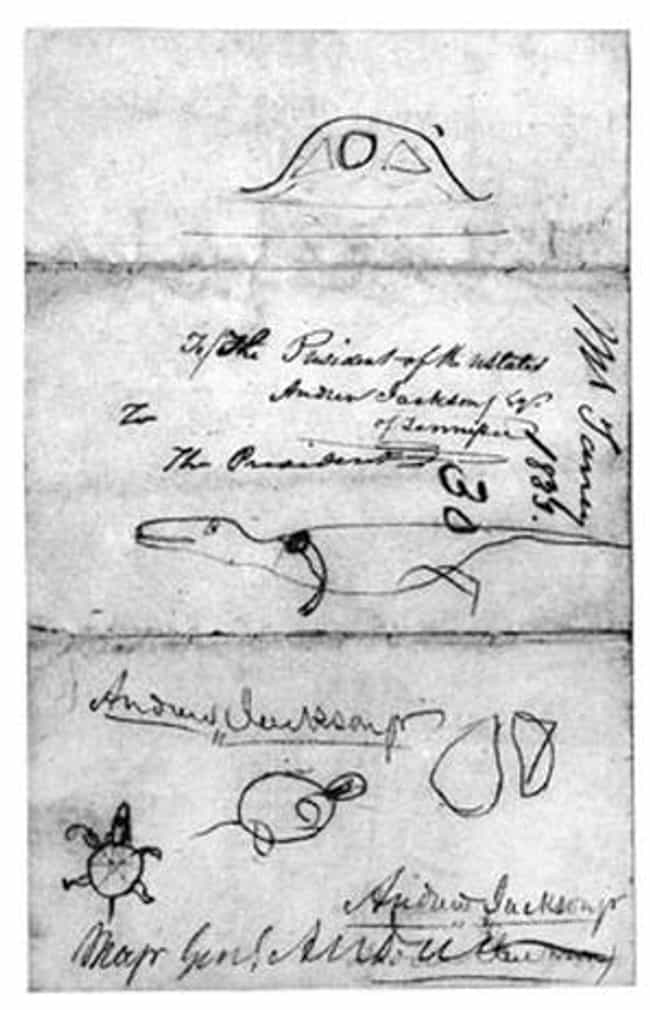 To/The President of the Ustates
Andrew Jackson Esqr.
of Tennissee
To
The President
30
1834.
Mr Taney
Andrew Jackson jr
Andrew Jackson jr
Majr Genl. Andrew